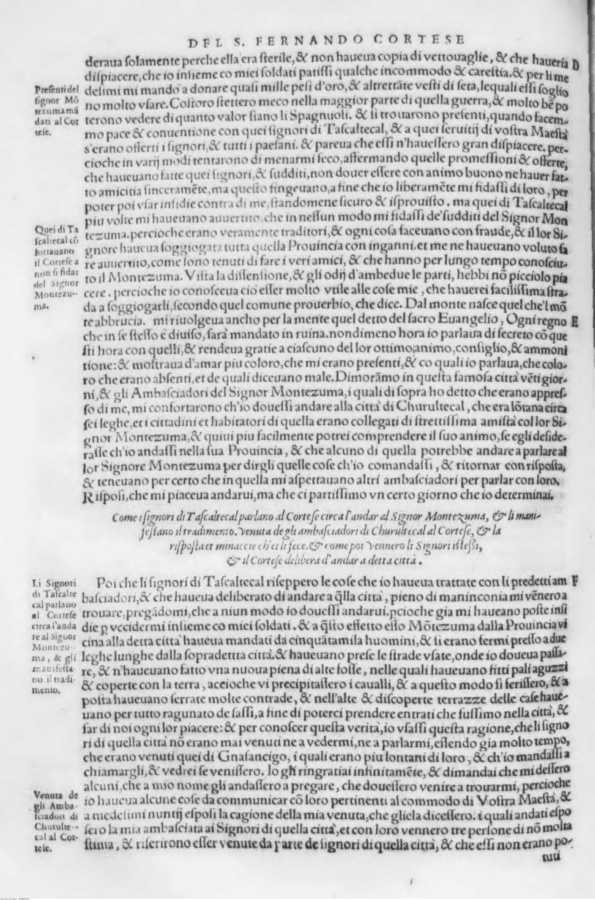 DEL S. FERNANDO CORTESE
deraua solamente perche ella era sterile, & non haueua copia di vettouaglie, & che haueria D
dispiacere, che io insieme co miei soldati patissi qualche incommodo & carestia. & per li me
desimi mi mandò a donare quasi mille pesi d'oro, & altrettãte vesti di seta, lequali essi soglio
no molto vsare. Costoro stettero meco nella maggior parte di quella guerra, & molto bẽ po
terono vedere di quanto valor siano li Spagnuoli. & li trouarono presenti, quando facem-
mo pace & conuentione con quei signori di Tascaltecal, & a quei seruitij di vostra Maestà
s'erano offerti i signori, & tutti i paesani. & pareua che essi n'hauessero gran dispiacere. per-
cioche in varij modi tentarono di menarmi seco, affermando quelle promessioni & offerte,
che haueuano fatte quei signori, & sudditi, non douer essere con animo buono ne hauer fat-
to amicitia sinceramẽte, ma questo fingeuano, a fine che io liberamẽte mi fidassi di loro, per
poter poi vsar insidie contra di me, standomene sicuro & isprouisto. ma quei di Tascaltecal
piu volte mi haueuano auuertito, che in nessun modo mi fidassi de'sudditi del Signor Mon
tezuma. percioche erano veramente traditori, & ogni cosa faceuano con fraude, & il lor Si-
gnore haueua soggiogata tutta quella Prouincia con inganni. et me ne haueuano voluto fa
re auuertito, come sono tenuti di fare i veri amici, & che hanno per lungo tempo conosciu-
to il Montezuma. Vista la dissensione, & gli odij d'ambedue le parti, hebbi nõ picciolo pia
cere. percioche io conosceua ciò esser molto vtile alle cose mie, che hauerei facilissima stra-
da a soggiogarli, secondo quel comune prouerbio, che dice. Dal monte nasce quel che'l mõ
te abbrucia. mi riuolgeua ancho per la mente quel detto del sacro Euangelio, Ogni regno E
che in se stesso è diuiso, sarà mandato in ruina. nondimeno hora io parlaua di secreto cõ que
sti hora con quelli, & rendeua gratie a ciascuno del lor ottimo animo, consiglio, & ammoni
tione: & mostraua d'amar piu coloro, che mi erano presenti, & co quali io parlaua, che colo-
ro che erano absenti, et de quali diceuano male. Dimorãmo in questa famosa città vẽti gior-
ni, & gli Ambasciadori del Signor Montezuma, i quali di sopra ho detto che erano appres-
so di me, mi confortarono ch'io douessi andare alla città di Churultecal, che era lõtana circa
sei leghe, et i cittadini et habitatori di quella erano collegati di strettissima amistà col lor Si-
gnor Montezuma, & quiui piu facilmente potrei comprendere il suo animo, se egli deside-
rasse ch'io andassi nella sua Prouincia, & che alcuno di quella potrebbe andare a parlare al
lor Signore Montezuma per dirgli quelle cose ch'io comandassi, & ritornar con risposta,
& teneuano per certo che in quella mi aspettauano altri ambasciadori per parlar con loro.
Risposi, che mi piaceua andarui, ma che ci partissimo vn certo giorno che io determinai.
Presenti del
signor Mõ
tezuma mã
dati al Cor
tese.
Quei di Ta
scaltecal cõ
fortauano
il Cortese a
non si fidar
del Signor
Montezu-
ma.
Come i signori di Tascaltecal parlano al Cortese circa l'andar al Signor Montezuma, & li mani-
festano il tradimento. Venuta de gli ambasciadori di Churultecal al Cortese, & la
risposta et minaccie ch'ei li fece. & come poi vennero li Signori istessi,
& il Cortese delibera d'andar a detta città.
Poi che li signori di Tascaltecal riseppero le cose che io haueua trattate con li predetti am F
basciadori, & che haueua deliberato di andare a q̃lla città, pieno di maninconia mi vẽnero a
trouare, pregãdomi, che a niun modo io douessi andarui. pcioche gia mi haueano poste insi
die p vccidermi insieme co miei soldati. & a q̃sto effetto esso Mõtezuma dalla Prouincia vi
cina alla detta città haueua mandati da cinquãtamila huomini, & si erano fermi presso a due
leghe lunghe dalla sopradetta città, & haueuano prese le strade vsate, onde io doueua passa-
re, & n'haueuano fatto vna nuoua piena di alte fosse, nelle quali haueuano fitti pali aguzzi
& coperte con la terra, accioche vi precipitassero i caualli, & a questo modo si ferissero, & a
posta haueuano serrate molte contrade, & nell'alte & discoperte terrazze delle case haue-
uano per tutto ragunato de sassi, a fine di poterci prendere entrati che fussimo nella città, &
far di noi ogni lor piacere: & per conoscer questa verità, io vsassi questa ragione, che li signo
ri di quella città nõ erano mai venuti ne a vedermi, ne a parlarmi, essendo gia molto tempo,
che erano venuti quei di Gnasancigo, i quali erano piu lontani di loro, & ch'io mandassi a
chiamargli, & vedrei se venissero. Io gli ringratiai infinitamẽte, & dimandai che mi dessero
alcuni, che a mio nome gli andassero a pregare, che douessero venire a trouarmi, percioche
io haueua alcune cose da communicar cõ loro pertinenti al commodo di Vostra Maestà, &
a medesimi nuntij esposi la cagione della mia venuta, che gliela dicessero. i quali andati espo
sero la mia ambasciata ai Signori di quella città, et con loro vennero tre persone di nõ molta
stima, & riferirono esser venute da parte de signori di quella città, & che essi non erano po-
tuti
Li Signori
di Tascalte
cal parlano
al Cortese
circa l'anda
re al Signor
Montezu-
ma, & gli
manifesta
no il tradi-
mento.
Venuta de
gli Amba-
sciadori di
Churulte-
cal al Cor-
tese.